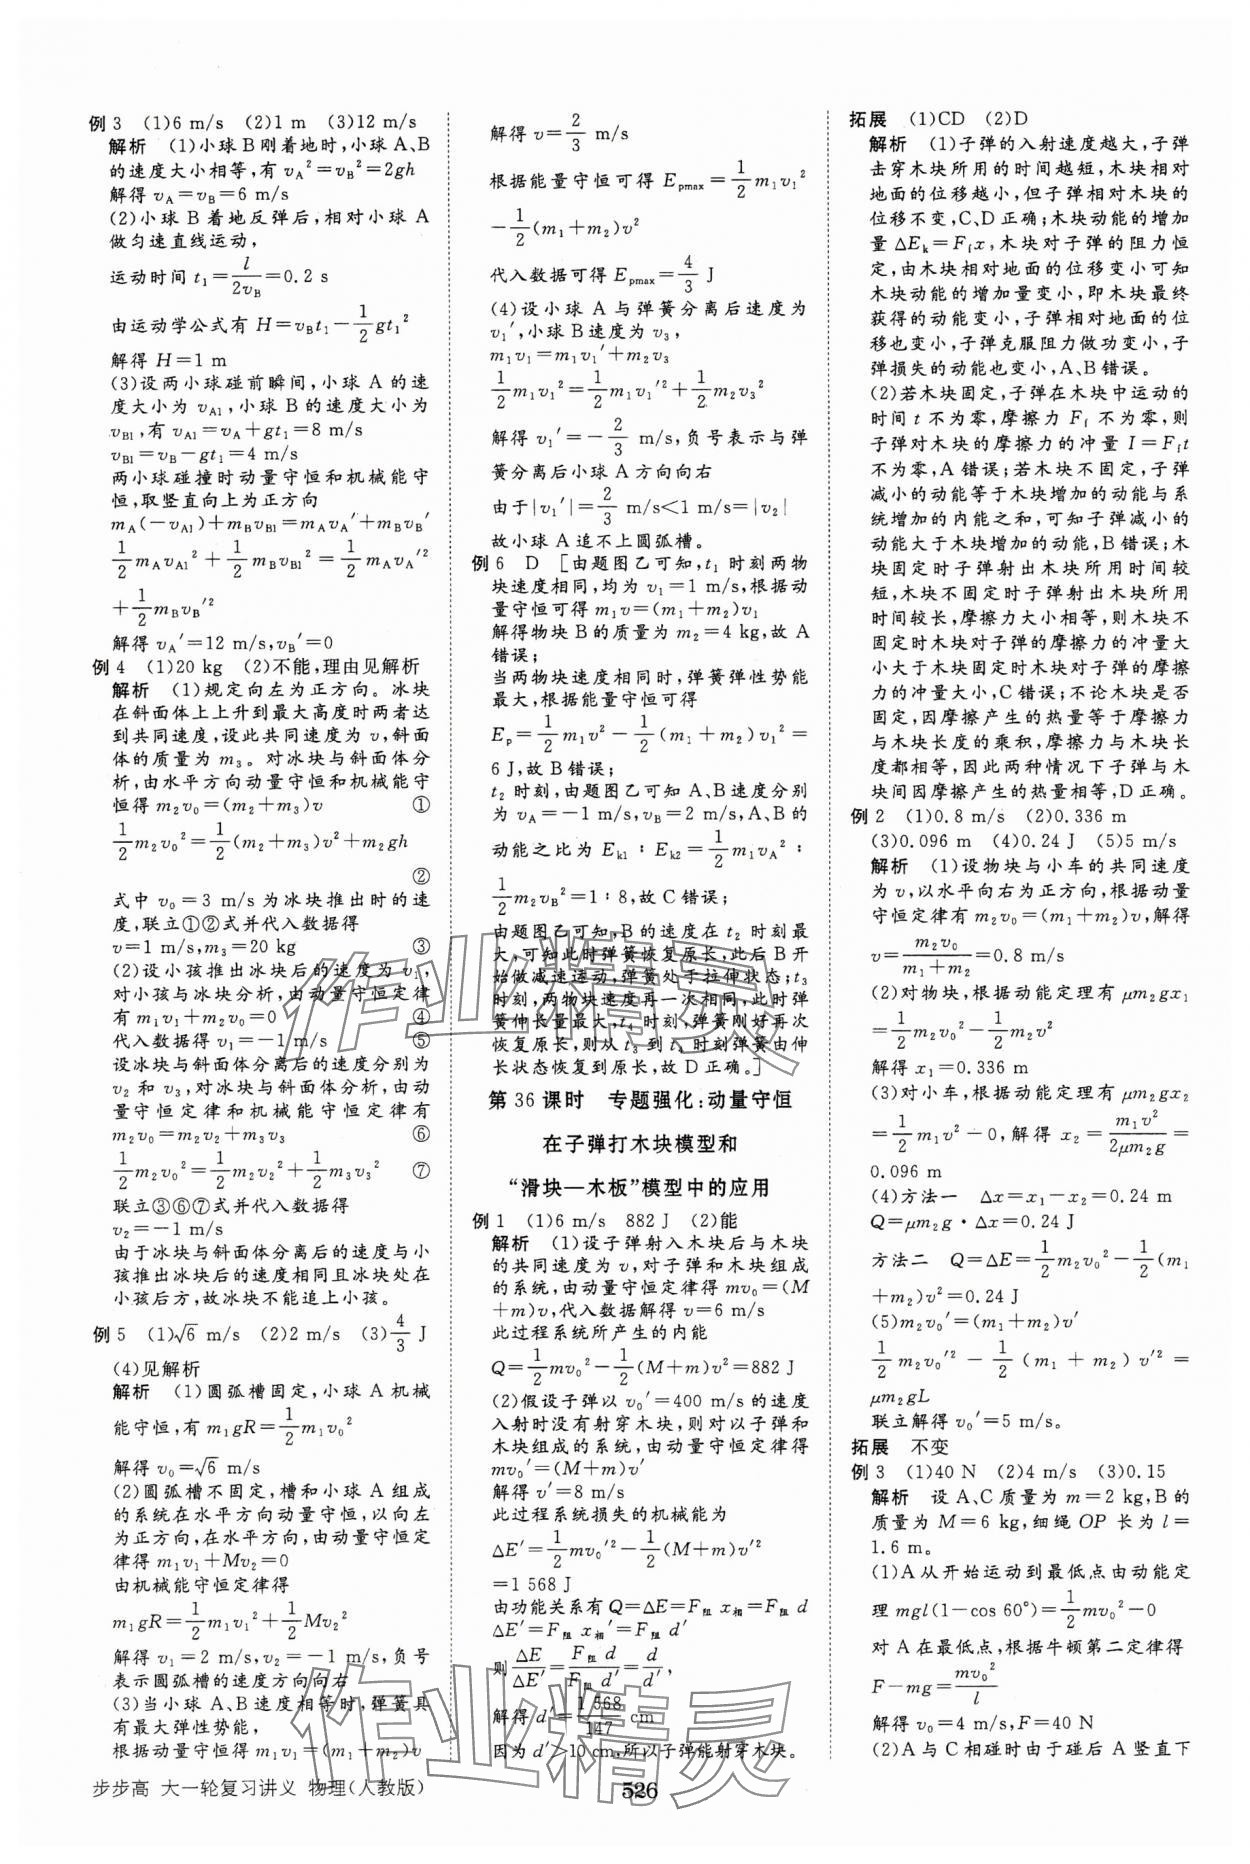 例 3 (1)6 m/s (2)1 m (3)12 m/s
解析 (1)小球 B 刚着地时,小球 A、B
的速度大小相等,有 v_A²=v_B²=2gh
解得 v_A=v_B=6 m/s
(2)小球 B 着地反弹后,相对小球 A
做匀速直线运动,
运动时间 t₁=l/2v_B=0.2 s
由运动学公式有 H=v_Bt₁-1/2gt₁²
解得 H=1 m
(3)设两小球碰前瞬间,小球 A 的速
度大小为 v_A1,小球 B 的速度大小为
v_B1,有 v_A1=v_A+gt₁=8 m/s
v_B1=v_B-gt₁=4 m/s
两小球碰撞时动量守恒和机械能守
恒,取竖直向上为正方向
m_A(-v_A1)+m_Bv_B1=m_Av_A′+m_Bv_B′
1/2m_Av_A1²+1/2m_Bv_B1²=1/2m_Av_A′²
+1/2m_Bv_B′²
解得 v_A′=12 m/s,v_B′=0
例 4 (1)20 kg (2)不能,理由见解析
解析 (1)规定向左为正方向。冰块
在斜面体上上升到最大高度时两者达
到共同速度,设此共同速度为 v,斜面
体的质量为 m₃。对冰块与斜面体分
析,由水平方向动量守恒和机械能守
恒得 m₂v₀=(m₂+m₃)v ①
1/2m₂v₀²=1/2(m₂+m₃)v²+m₂gh
②
式中 v₀=3 m/s 为冰块推出时的速
度,联立①②式并代入数据得
v=1 m/s,m₃=20 kg ③
(2)设小孩推出冰块后的速度为 v₁,
对小孩与冰块分析,由动量守恒定律
有 m₁v₁+m₂v₀=0 ④
代入数据得 v₁=-1 m/s ⑤
设冰块与斜面体分离后的速度分别为
v₂ 和 v₃,对冰块与斜面体分析,由动
量守恒定律和机械能守恒定律有
m₂v₀=m₂v₂+m₃v₃ ⑥
1/2m₂v₀²=1/2m₂v₂²+1/2m₃v₃² ⑦
联立③⑥⑦式并代入数据得
v₂=-1 m/s
由于冰块与斜面体分离后的速度与小
孩推出冰块后的速度相同且冰块处在
小孩后方,故冰块不能追上小孩。
例 5 (1)√6 m/s (2)2 m/s (3)4/3 J
(4)见解析
解析 (1)圆弧槽固定,小球 A 机械
能守恒,有 m₁gR=1/2m₁v₀²
解得 v₀=√6 m/s
(2)圆弧槽不固定,槽和小球 A 组成
的系统在水平方向动量守恒,以向左
为正方向,在水平方向,由动量守恒定
律得 m₁v₁+Mv₂=0
由机械能守恒定律得
m₁gR=1/2m₁v₁²+1/2Mv₂²
解得 v₁=2 m/s,v₂=-1 m/s,负号
表示圆弧槽的速度方向向右
(3)当小球 A、B 速度相等时,弹簧具
有最大弹性势能,
根据动量守恒得 m₁v₁=(m₁+m₂)v
解得 v=2/3 m/s
根据能量守恒可得 E_pmax=1/2m₁v₁²
-1/2(m₁+m₂)v²
代入数据可得 E_pmax=4/3 J
(4)设小球 A 与弹簧分离后速度为
v₁′,小球 B 速度为 v₃,
m₁v₁=m₁v₁′+m₂v₃
1/2m₁v₁²=1/2m₁v₁′²+1/2m₂v₃²
解得 v₁′=-2/3 m/s,负号表示与弹
簧分离后小球 A 方向向右
由于|v₁′|=2/3 m/s<1 m/s=|v₂|
故小球 A 追不上圆弧槽。
例 6 D [由题图乙可知,t₁ 时刻两物
块速度相同,均为 v₁=1 m/s,根据动
量守恒可得 m₁v=(m₁+m₂)v₁
解得物块 B 的质量为 m₂=4 kg,故 A
错误;
当两物块速度相同时,弹簧弹性势能
最大,根据能量守恒可得
E_p=1/2m₁v²-1/2(m₁+m₂)v₁²=
6 J,故 B 错误;
t₂ 时刻,由题图乙可知 A、B 速度分别
为 v_A=-1 m/s,v_B=2 m/s,A、B 的
动能之比为 E_k1∶E_k2=1/2m₁v_A²∶
1/2m₂v_B²=1∶8,故 C 错误;
由题图乙可知,B 的速度在 t₂ 时刻最
大,可知此时弹簧恢复原长,此后 B 开
始做减速运动,弹簧处于拉伸状态;t₃
时刻,两物块速度再一次相同,此时弹
簧伸长量最大,t₄ 时刻,弹簧刚好再次
恢复原长,则从 t₃ 到 t₄ 时刻弹簧由伸
长状态恢复到原长,故 D 正确。]
第 36 课时 专题强化:动量守恒
在子弹打木块模型和
“滑块—木板”模型中的应用
例 1 (1)6 m/s 882 J (2)能
解析 (1)设子弹射入木块后与木块
的共同速度为 v,对子弹和木块组成
的系统,由动量守恒定律得 mv₀=(M
+m)v,代入数据解得 v=6 m/s
此过程系统所产生的内能
Q=1/2mv₀²-1/2(M+m)v²=882 J
(2)假设子弹以 v₀′=400 m/s 的速度
入射时没有射穿木块,则对以子弹和
木块组成的系统,由动量守恒定律得
mv₀′=(M+m)v′
解得 v′=8 m/s
此过程系统损失的机械能为
ΔE′=1/2mv₀′²-1/2(M+m)v′²
=1 568 J
由功能关系有 Q=ΔE=F阻 x相=F阻 d
ΔE′=F阻 x相′=F阻 d′
则ΔE/ΔE′=F阻 d/F阻 d′=d/d′,
解得 d′=1 568/147 cm
因为 d′>10 cm,所以子弹能射穿木块。
拓展 (1)CD (2)D
解析 (1)子弹的入射速度越大,子弹
击穿木块所用的时间越短,木块相对
地面的位移越小,但子弹相对木块的
位移不变,C、D 正确;木块动能的增加
量 ΔE_k=F_f x,木块对子弹的阻力恒
定,由木块相对地面的位移变小可知
木块动能的增加量变小,即木块最终
获得的动能变小,子弹相对地面的位
移也变小,子弹克服阻力做功变小,子
弹损失的动能也变小,A、B 错误。
(2)若木块固定,子弹在木块中运动的
时间 t 不为零,摩擦力 F_f 不为零,则
子弹对木块的摩擦力的冲量 I=F_f t
不为零,A 错误;若木块不固定,子弹
减小的动能等于木块增加的动能与系
统增加的内能之和,可知子弹减小的
动能大于木块增加的动能,B 错误;木
块固定时子弹射出木块所用时间较
短,木块不固定时子弹射出木块所用
时间较长,摩擦力大小相等,则木块不
固定时木块对子弹的摩擦力的冲量大
小大于木块固定时木块对子弹的摩擦
力的冲量大小,C 错误;不论木块是否
固定,因摩擦产生的热量等于摩擦力
与木块长度的乘积,摩擦力与木块长
度都相等,因此两种情况下子弹与木
块间因摩擦产生的热量相等,D 正确。
例 2 (1)0.8 m/s (2)0.336 m
(3)0.096 m (4)0.24 J (5)5 m/s
解析 (1)设物块与小车的共同速度
为 v,以水平向右为正方向,根据动量
守恒定律有 m₂v₀=(m₁+m₂)v,解得
v=m₂v₀/m₁+m₂=0.8 m/s
(2)对物块,根据动能定理有 μm₂gx₁
=1/2m₂v₀²-1/2m₂v²
解得 x₁=0.336 m
(3)对小车,根据动能定理有 μm₂gx₂
=1/2m₁v²-0,解得 x₂=m₁v²/2μm₂g=
0.096 m
(4)方法一 Δx=x₁-x₂=0.24 m
Q=μm₂g·Δx=0.24 J
方法二 Q=ΔE=1/2m₂v₀²-1/2(m₁
+m₂)v²=0.24 J
(5)m₂v₀′=(m₁+m₂)v′
1/2m₂v₀′²-1/2(m₁+m₂)v′²=
μm₂gL
联立解得 v₀′=5 m/s。
拓展 不变
例 3 (1)40 N (2)4 m/s (3)0.15
解析 设 A、C 质量为 m=2 kg,B 的
质量为 M=6 kg,细绳 OP 长为 l=
1.6 m。
(1)A 从开始运动到最低点由动能定
理 mgl(1-cos 60°)=1/2mv₀²-0
对 A 在最低点,根据牛顿第二定律得
F-mg=mv₀²/l
解得 v₀=4 m/s,F=40 N
(2)A 与 C 相碰时由于碰后 A 竖直下
步步高 大一轮复习讲义 物理(人教版)
526
作业精灵
作业精灵